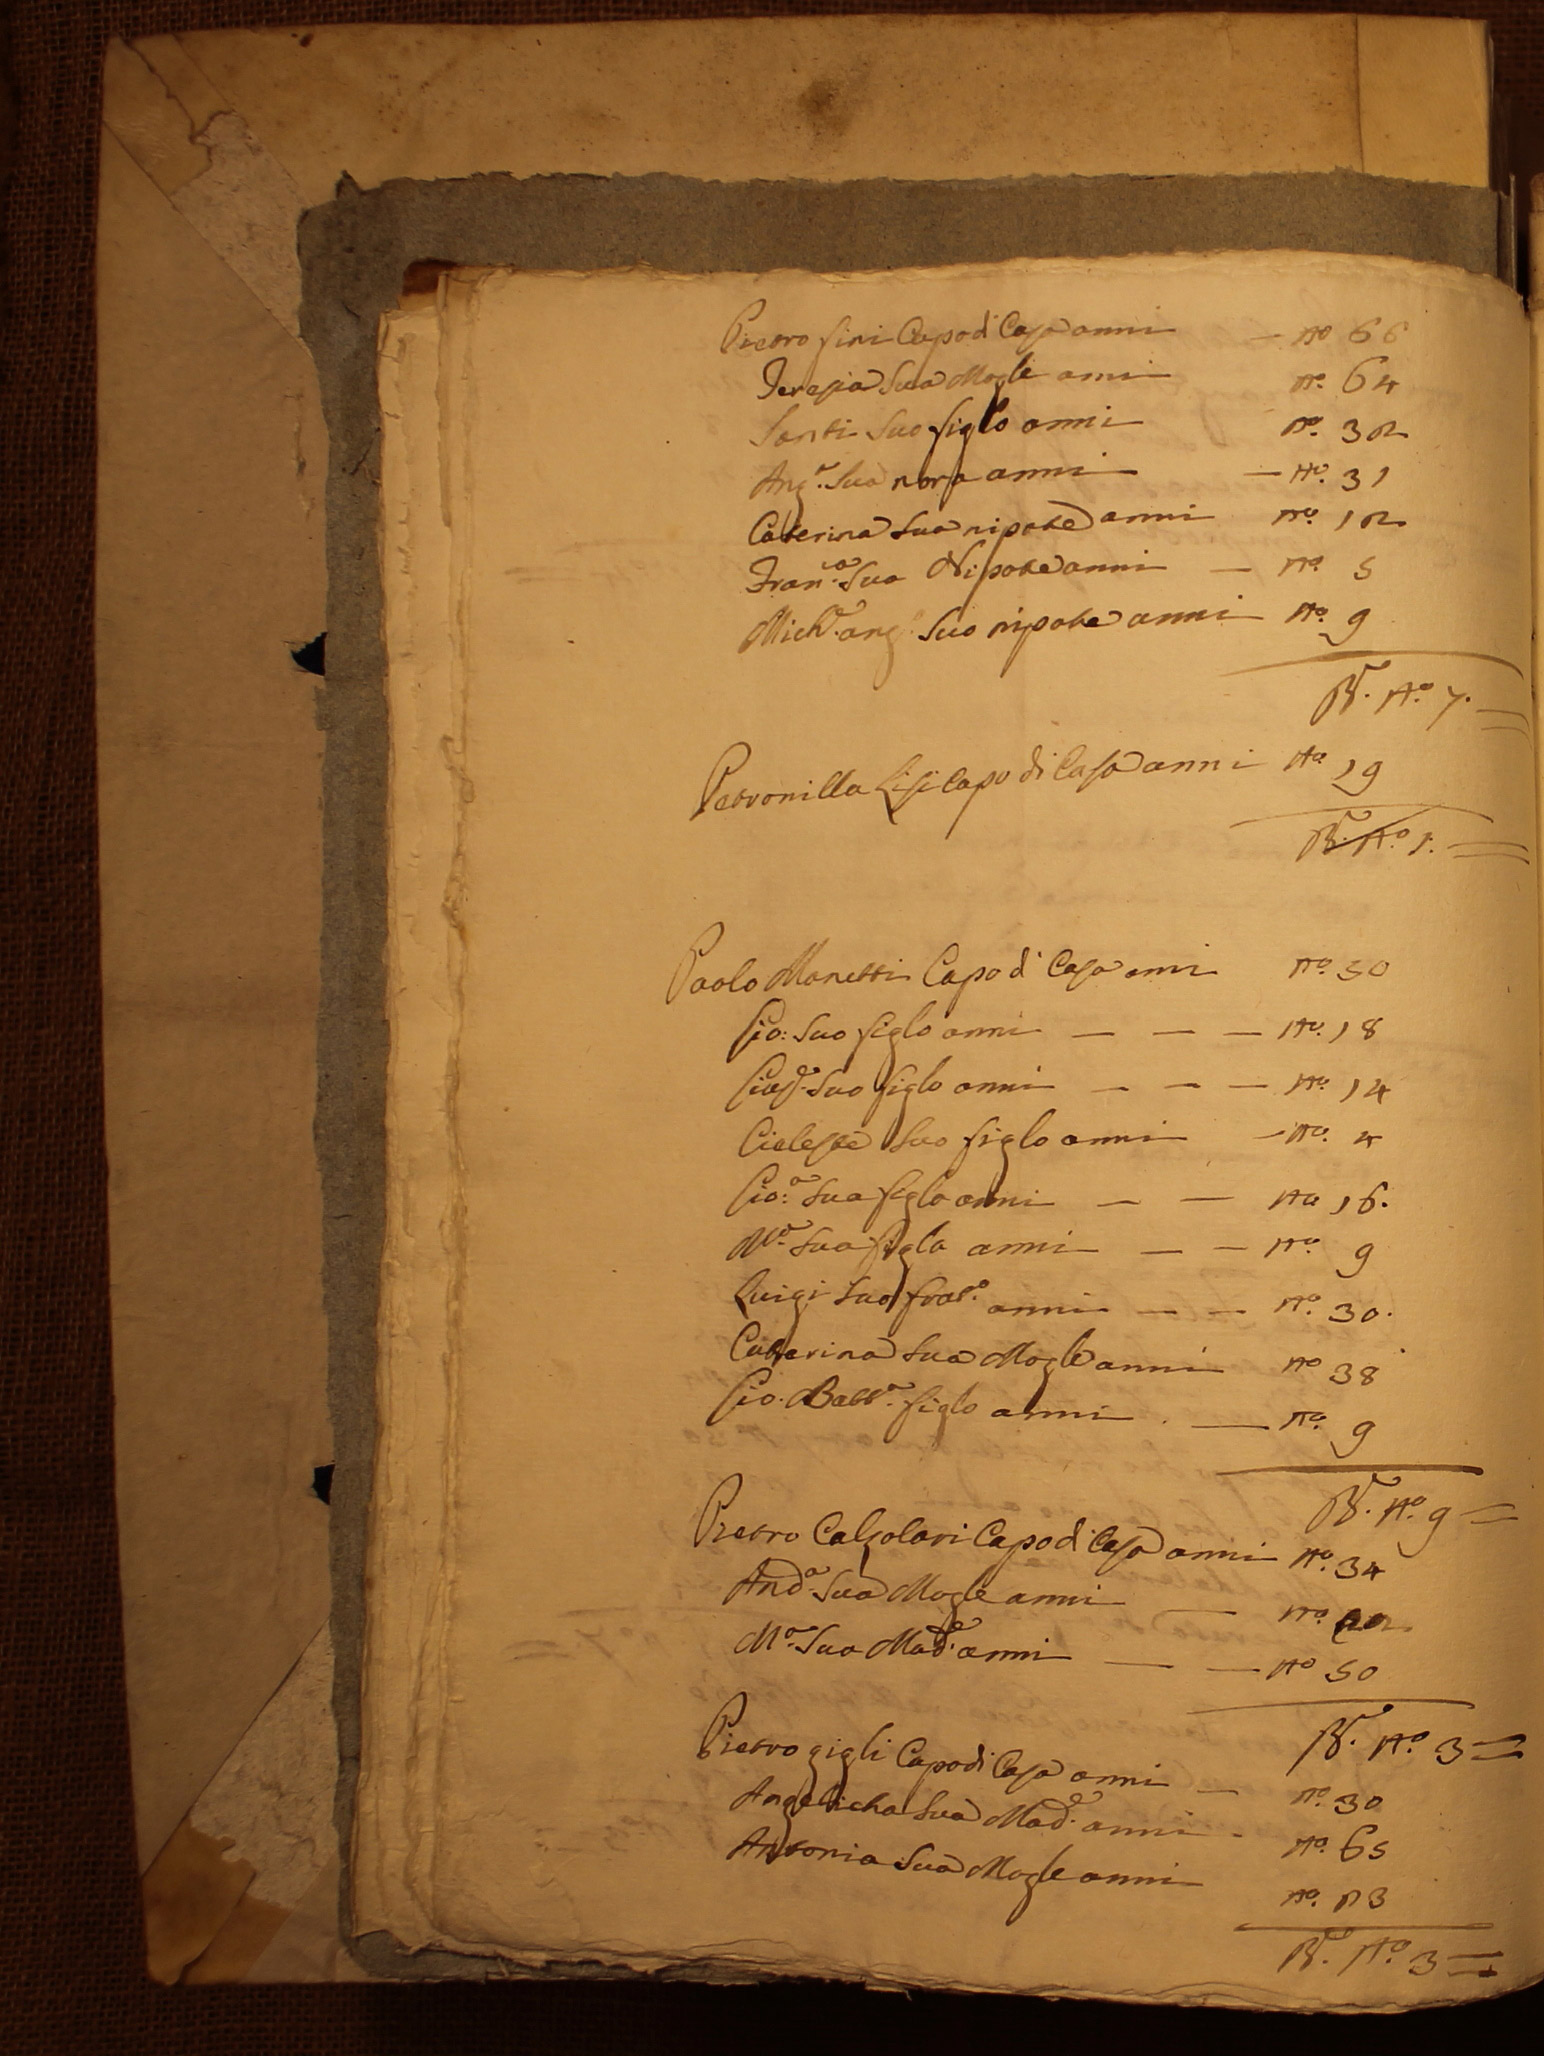 Pietro fini Capo di Casa anni — No 66
Teresia Sua Mogle anni No. 64
Santi Suo figlo anni No. 32
Anga. Sua nora anni — No. 31
Caterina Sua nipote anni No. 12
Franca. Sua Nipote anni — No. 5
Michel. ang. Suo nipote anni No. 9
No. 7.
Petronilla Lisi Capo di Casa anni No 19
No. 1.
Paolo Manetti Capo di Casa anni No. 50
Gio: Suo figlo anni — — — No. 18
Giuse. Suo figlo anni — — — No. 14
Cieleste Suo figlo anni — No. 4
Gio:a Sua figla anni — — No 16.
Ma. Sua figla anni — — No. 9
Luigi Suo frato. anni — — No. 30.
Catterina Sua Mogle anni No 38
Gio. Batta. figlo anni — No. 9
No. 9
Pietro Calzolari Capo di Casa anni No. 34
Anda. Sua Mogle anni — No. 22
Ma. Sua Made. anni — — No 50
No. 3
Pietro gigli Capo di Casa anni — No. 30
Angelicha Sua Made. anni - No. 65
Antonia Sua Mogle anni No. 23
No. 3